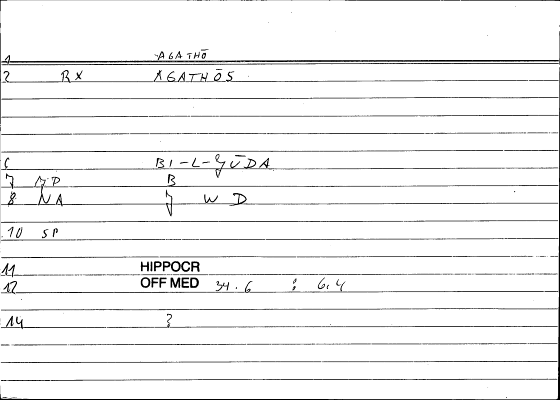 1 AGATHŌ
2 RX AGATHŌS
6 BI-L-ǦŪDA
7 MD B
8 NA Ǧ W D
10 SP
11 HIPPOCR
12 OFF MED 34.6 : 6.4
14 3